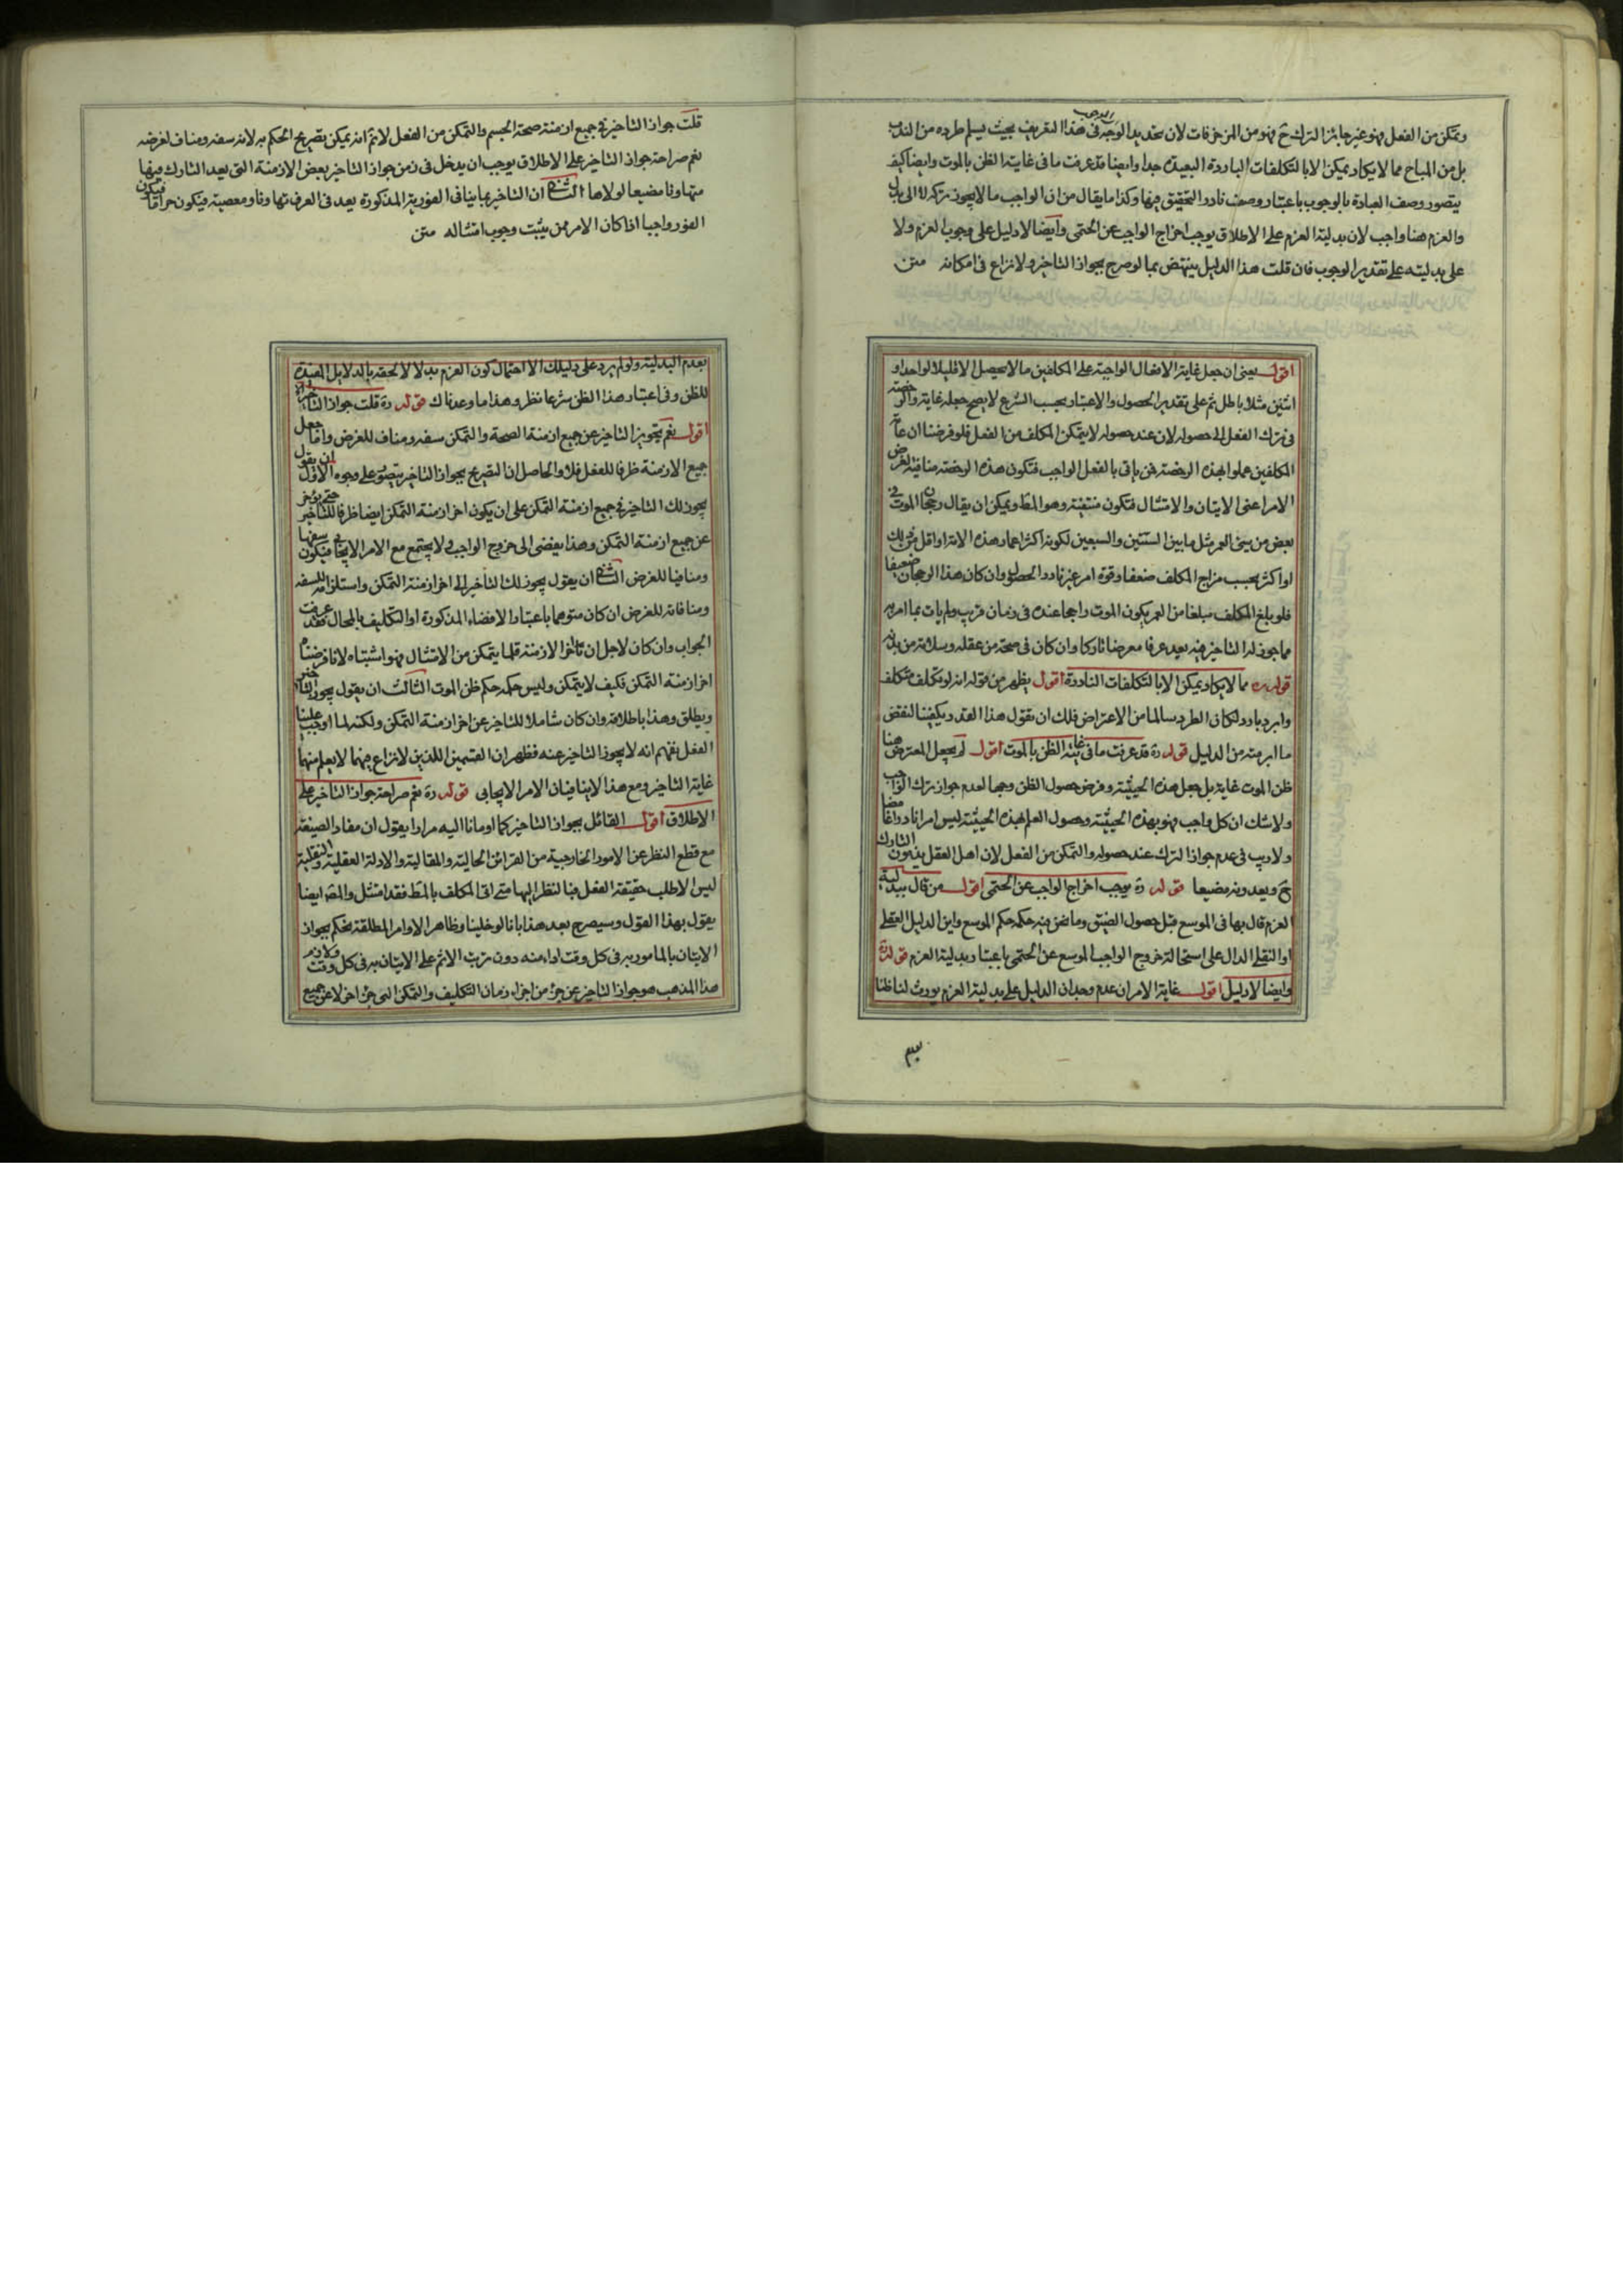 وتمكن من الفعل فهو غير جائز الترك ح فهو من المزخرفات لان تحديد الوجه فى هذا التعريف بحيث يسلم طرده من الندب
بل من المباح مما لا يكاد يمكن الا بالتكلفات الباردة البعيدة جدا وايضا قد عرفت ما فى غاية الظن بالموت وايضا كيف
يتصور وصف العبادة بالوجوب باعتبار وصف نادر التحقق فيها وكذا ما يقال من ان الواجب ما لا يجوز تركه لا الى بدل
والعزم هنا واجب لان بدلية العزم على الاطلاق يوجب اخراج الواجب عن الحتمى وايضا لا دليل على وجوب العزم ولا
على بدليته على تقدير الوجوب فان قلت هذا الدليل ينتهض بما لو صرح بجواز التاخير ولا نزاع فى امكانه متن
اقول يعنى ان جعل غاية الافعال الواجبة على المكلفين ما لا يحصل الا قليلا لواحد او
اثنين مثلا باطل ثم على تقدير الحصول والاعتبار بحسب الشرع لا يصح جعله غاية والرخصة
فى ترك الفعل الى حصوله لان عند حصوله لا يتمكن المكلف من الفعل فلو فرضنا ان عامة
المكلفين عملوا بهذه الرخصة فمن ياتى بالفعل الواجب فتكون هذه الرخصة منافية لغرض
الامر اعنى الاتيان والامتثال فتكون منتفية وهو المط ويمكن ان يقال رجحان الموت فى
بعض من سنى العمر مثل ما بين الستين والسبعين لكونه اكثر اعمار هذه الامة او اقل من ذلك
او اكثر بحسب مزاج المكلف ضعفا وقوة امر غير نادر الحصول وان كان هذا الرجحان ضعيفا
فلو بلغ المكلف مبلغا من العمر يكون الموت راجحا عنده فى زمان قريب ولم يات بما امر به
مما جوز له التاخير فيه يعد عرفا معرضا تاركا وان كان فى صحة من عقله وسلامة من بدنه
قوله ره مما لا يكاد يمكن الا بالتكلفات الناددة اقول يظهر من قوله انه لو تكلف متكلف
وابرد بارد لكان الطرد سالما من الاعتراض فلك ان تقول هذا القدر يكفينا لنقض
ما ابرمته من الدليل قوله ره قد عرفت ما فى غاية الظن بالموت اقول لم يجعل المعترض هنا
ظن الموت غاية بل جعل هذه الحيثية وفرض حصول الظن وجها لعدم جواز ترك الواجب
ولا شك ان كل واجب فهو بهذه الحيثية وحصول العلم بهذه الحيثية ليس امرا نادرا
ولا ريب فى عدم جواز الترك عند حصوله والتمكن من الفعل لان اهل العقل يذمون التارك
ح ويعدونه مضيعا قوله ره يوجب اخراج الواجب عن الحتمى اقول من قال ببدلية
العزم قال بها فى الموسع قبل حصول الضيق وما نحن فيه حكمه حكم الموسع واين الدليل العقلى
او النقلى الدال على استحالة خروج الواجب الموسع عن الحتمى باعتبار بدلية العزم قوله ره
وايضا لا دليل اقول غاية الامر ان عدم وجدان الدليل على بدلية العزم يورث لنا ظنا
قلت جواز التاخير فى جميع ازمنة صحة الجسم والتمكن من الفعل لا نم انه يمكن تصريح الحكم به لانه سفه ومناف لغرضه
نعم صراحة جواز التاخير على الاطلاق يوجب ان يدخل فى زمن جواز التاخير بعض الازمنة التى يعد التارك فيها
متهاونا مضيعا لولاها الثانى ان التاخير بما ينافى الفورية المذكورة يعد فى العرف تهاونا ومعصية فيكون حراما فيكون
الفور واجبا اذا كان الامر ممن يثبت وجوب امتثاله متن
بعدم البدلية ولو لم يرد على دليلك الا احتمال كون العزم بدلا لالحقه بالدلايل المفيدة
للظن وفى اعتبار هذا الظن شرعا نظر وهذا ما وعدناك قوله ره قلت جواز التاخير
اقول نعم تجويز التاخير عن جميع ازمنة الصحة والتمكن سفه ومناف للغرض واما جعل
جميع الازمنة ظرفا للفعل فلا والحاصل ان التصريح بجواز التاخير يتصور على وجوه الاول ان يقول
يجوز لك التاخير فى جميع ازمنة التمكن على ان يكون اخر ازمنة التمكن ايضا ظرفا للتاخير حتى يؤخر
عن جميع ازمنة التمكن وهذا يفضى الى خروج الواجب ولا يجتمع مع الامر الايجابى فيكون سفها
ومنافيا للغرض الثانى ان يقول يجوز لك التاخير الى اخر ازمنة التمكن واستلزامه للسفه
ومنافاته للغرض ان كان متوهما باعتبار الافضاء المذكورة او التكليف بالمحال فقد عرفت
الجواب وان كان لاجل ان تاخر الازمنة قلما يتمكن من الامتثال فهو اشتباه لانا فرضناه
اخر ازمنة التمكن فكيف لا يتمكن وليس حكمه حكم ظن الموت الثالث ان يقول يجوز التاخير
ويطلق وهذا باطلاقه وان كان شاملا للتاخير عن اخر ازمنة التمكن ولكنه لما اوجب علينا
الفعل نفهم انه لا يجوز التاخير عنه فظهر ان القسمين اللذين لا نزاع فيهما لا يعلم منهما
غاية التاخير ومع هذا لا ينافيان الامر الايجابى قوله ره نعم صراحة جواز التاخير على
الاطلاق اقول القائل بجواز التاخير كما اومانا اليه مرارا يقول ان مفاد الصيغة
مع قطع النظر عن الامور الخارجية من القرائن الحالية والمقالية والادلة العقلية والنقلية
ليس الا طلب حقيقة الفعل فبالنظر اليها متى اتى المكلف بالمط فقد امتثل والمصـ ايضا
يقول بهذا القول وسيصرح بعد هذا بانا لو خلينا وظاهر الاوامر المطلقة نحكم بجواز
الاتيان بالمامور به فى كل وقت اداء منه دون ترتب الاثم على الاتيان به فى كل وقت ولازم
هذا المذهب هو جواز التاخير عن جزء من اجزاء زمان التكليف والتمكن الى جزء اخر لا عن جميع